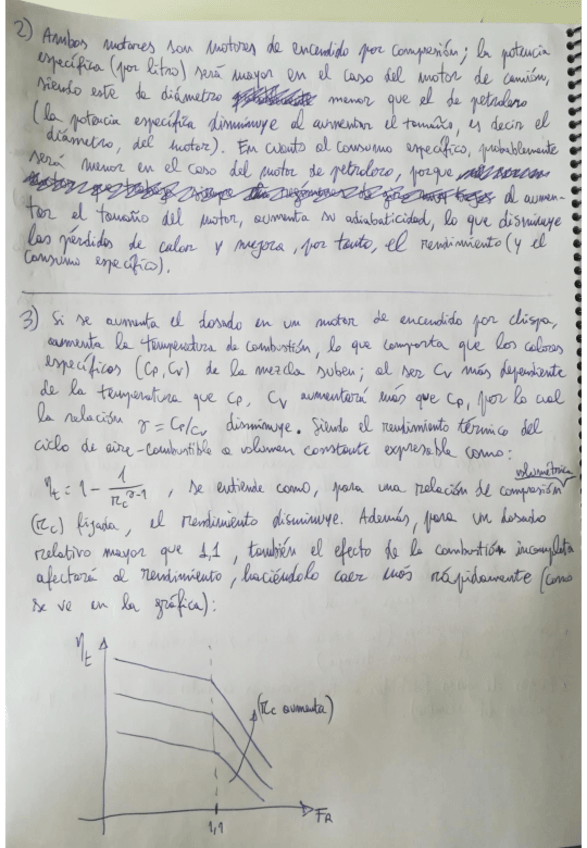 2) Ambos motores son motores de encendido por compresión; la potencia
específica (por litro) será mayor en el caso del motor de camión,
siendo este de diámetro menor que el de petrolero
(la potencia específica disminuye al aumentar el tamaño, es decir el
diámetro, del motor). En cuanto al consumo específico, probablemente
será menor en el caso del motor de petrolero, porque
al aumen-
tar el tamaño del motor, aumenta su adiabaticidad, lo que disminuye
las pérdidas de calor y mejora, por tanto, el rendimiento (y el
consumo específico).
3) Si se aumenta el dosado en un motor de encendido por chispa,
aumenta la temperatura de combustión, lo que comporta que los calores
específicos (Cp, Cv) de la mezcla suben; al ser Cv más dependiente
de la temperatura que Cp, Cv aumentará más que Cp, por lo cual
la relación γ = Cp/Cv disminuye. Siendo el rendimiento térmico del
ciclo de aire-combustible a volumen constante expresable como:
ηt = 1 - 1/rc^(γ-1), se entiende como, para una relación de compresión volumétrica
(rc) fijada, el rendimiento disminuye. Además, para un dosado
relativo mayor que 1,1, también el efecto de la combustión incompleta
afectará al rendimiento, haciéndolo caer más rápidamente (como
se ve en la gráfica):
ηt
(rc aumenta)
1,1
FR